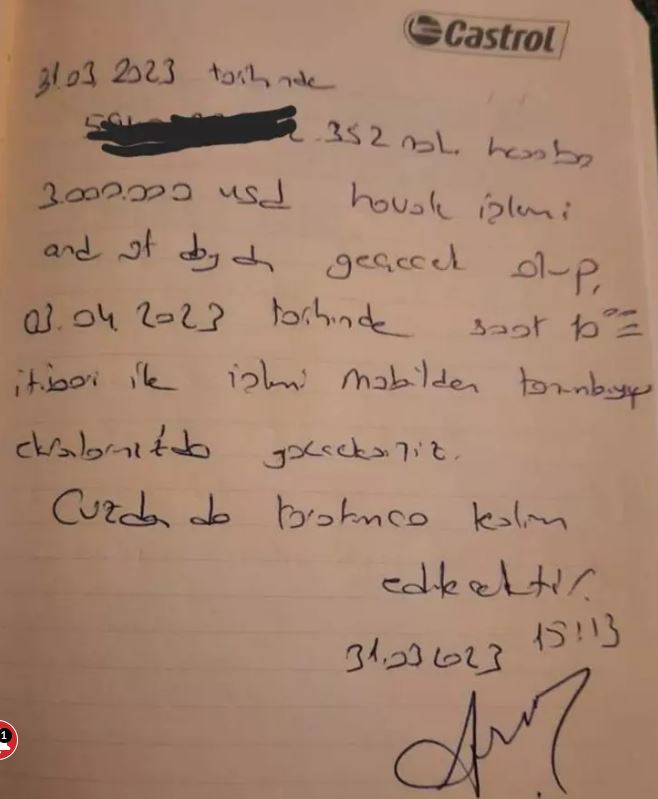 Castrol
31.03 2023 tarihinde
352 nol. hesaba
3.000.000 usd havale işlemi
and
geçecek olup,
03.04 2023 tarihinde saat 10⁰⁰
itibari ile işlemi mobilden tamamlayıp
ekranlarınızda göreceksiniz.
Cüzdan da
teslim
edilecektir.
31.03 2023 15:13
1